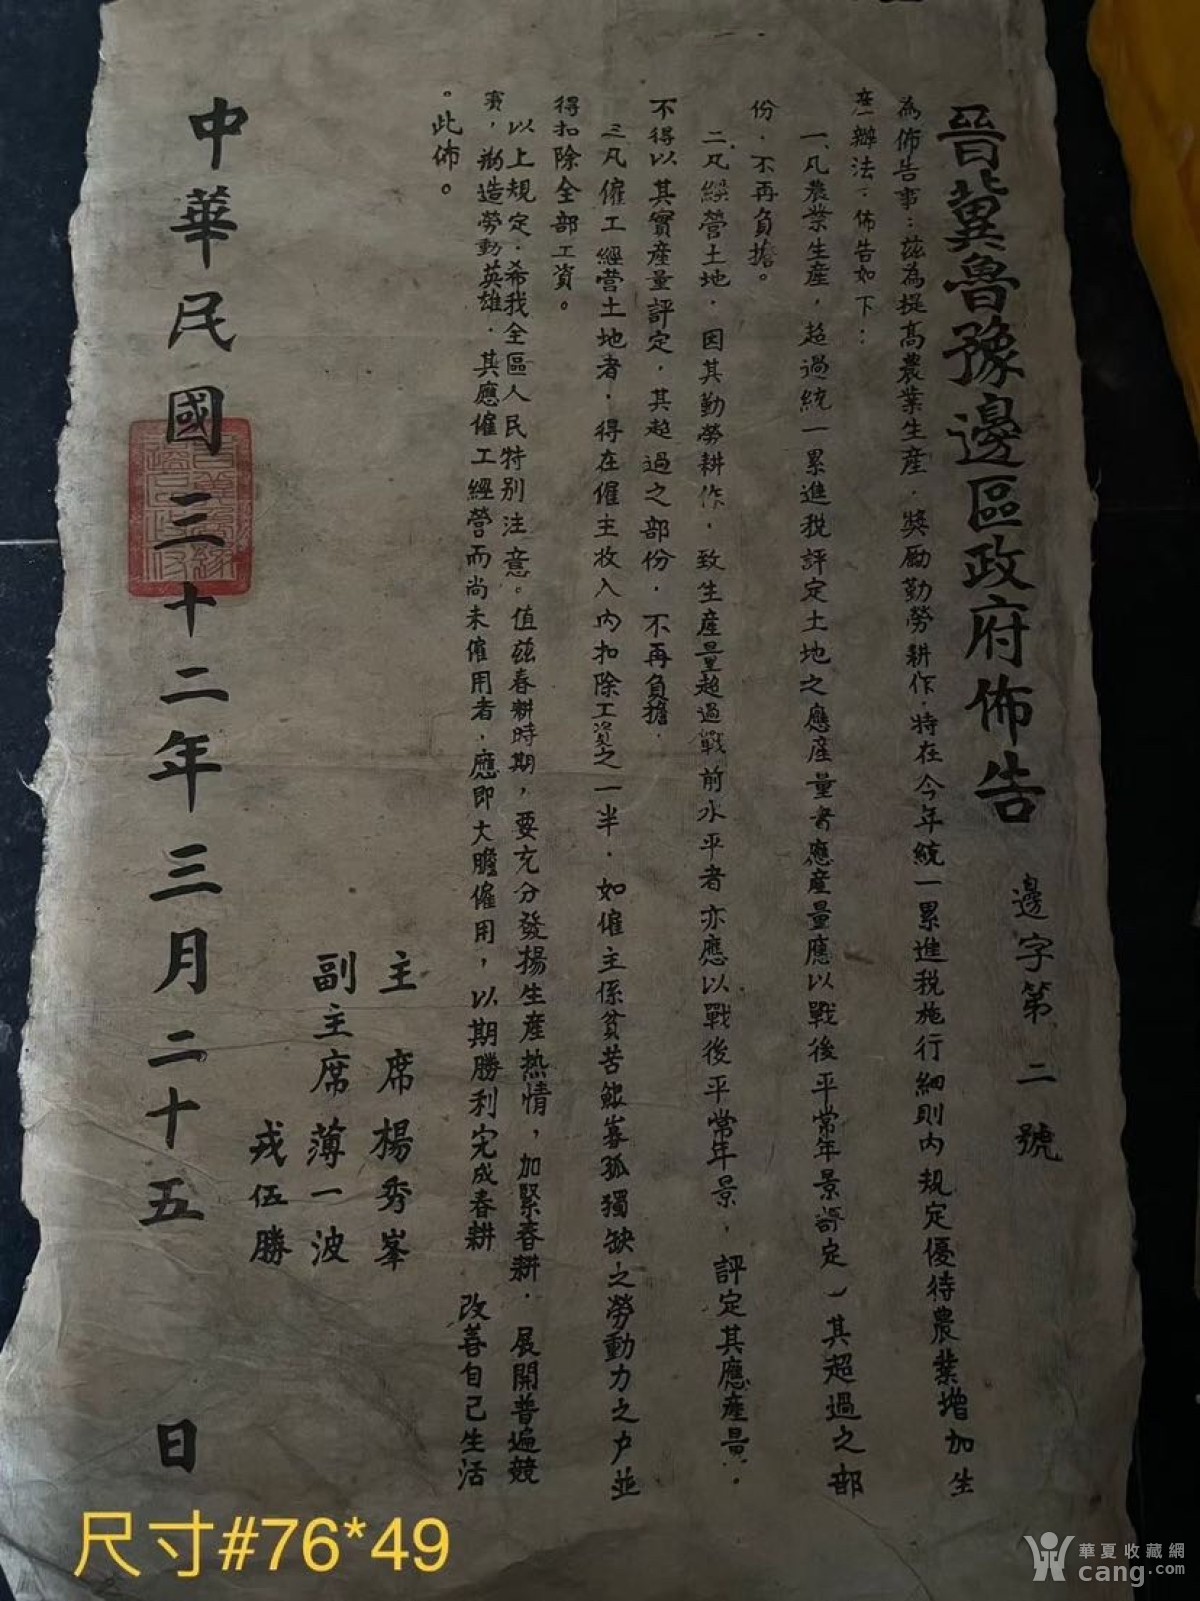 晉冀魯豫邊區政府佈告 邊字第二號
為佈告事：茲為提高農業生產．獎勵勤勞耕作．特在今年統一累進稅施行細則內規定優待農業增加生
產辦法．佈告如下：
一、凡農業生產，超過統一累進稅評定土地之應產量者應產量應以戰後平常年景評定，其超過之部
份．不再負擔。
二、凡經營土地．因其勤勞耕作．致生產量超過戰前水平者亦應以戰後平常年景，評定其應產量．
不得以其實產量評定，其超過之部份．不再負擔．
三、凡僱工經營土地者．得在僱主收入內扣除工資之一半．如僱主係貧苦鰥寡孤獨缺之勞動力之户並
得扣除全部工資。
以上規定．希我全區人民特别注意。值茲春耕時期，要充分發揚生產热情，加緊春耕．展開普遍競
賽，創造勞動英雄．其應僱工經營而尚未僱用者．應即大膽僱用，以期勝利完成春耕 改善自己生活
。此佈。
主 席 楊秀峯
副主席 薄一波
戎伍勝
中華民國三十二年三月二十五日
尺寸#76*49
華夏收藏網
cang.com